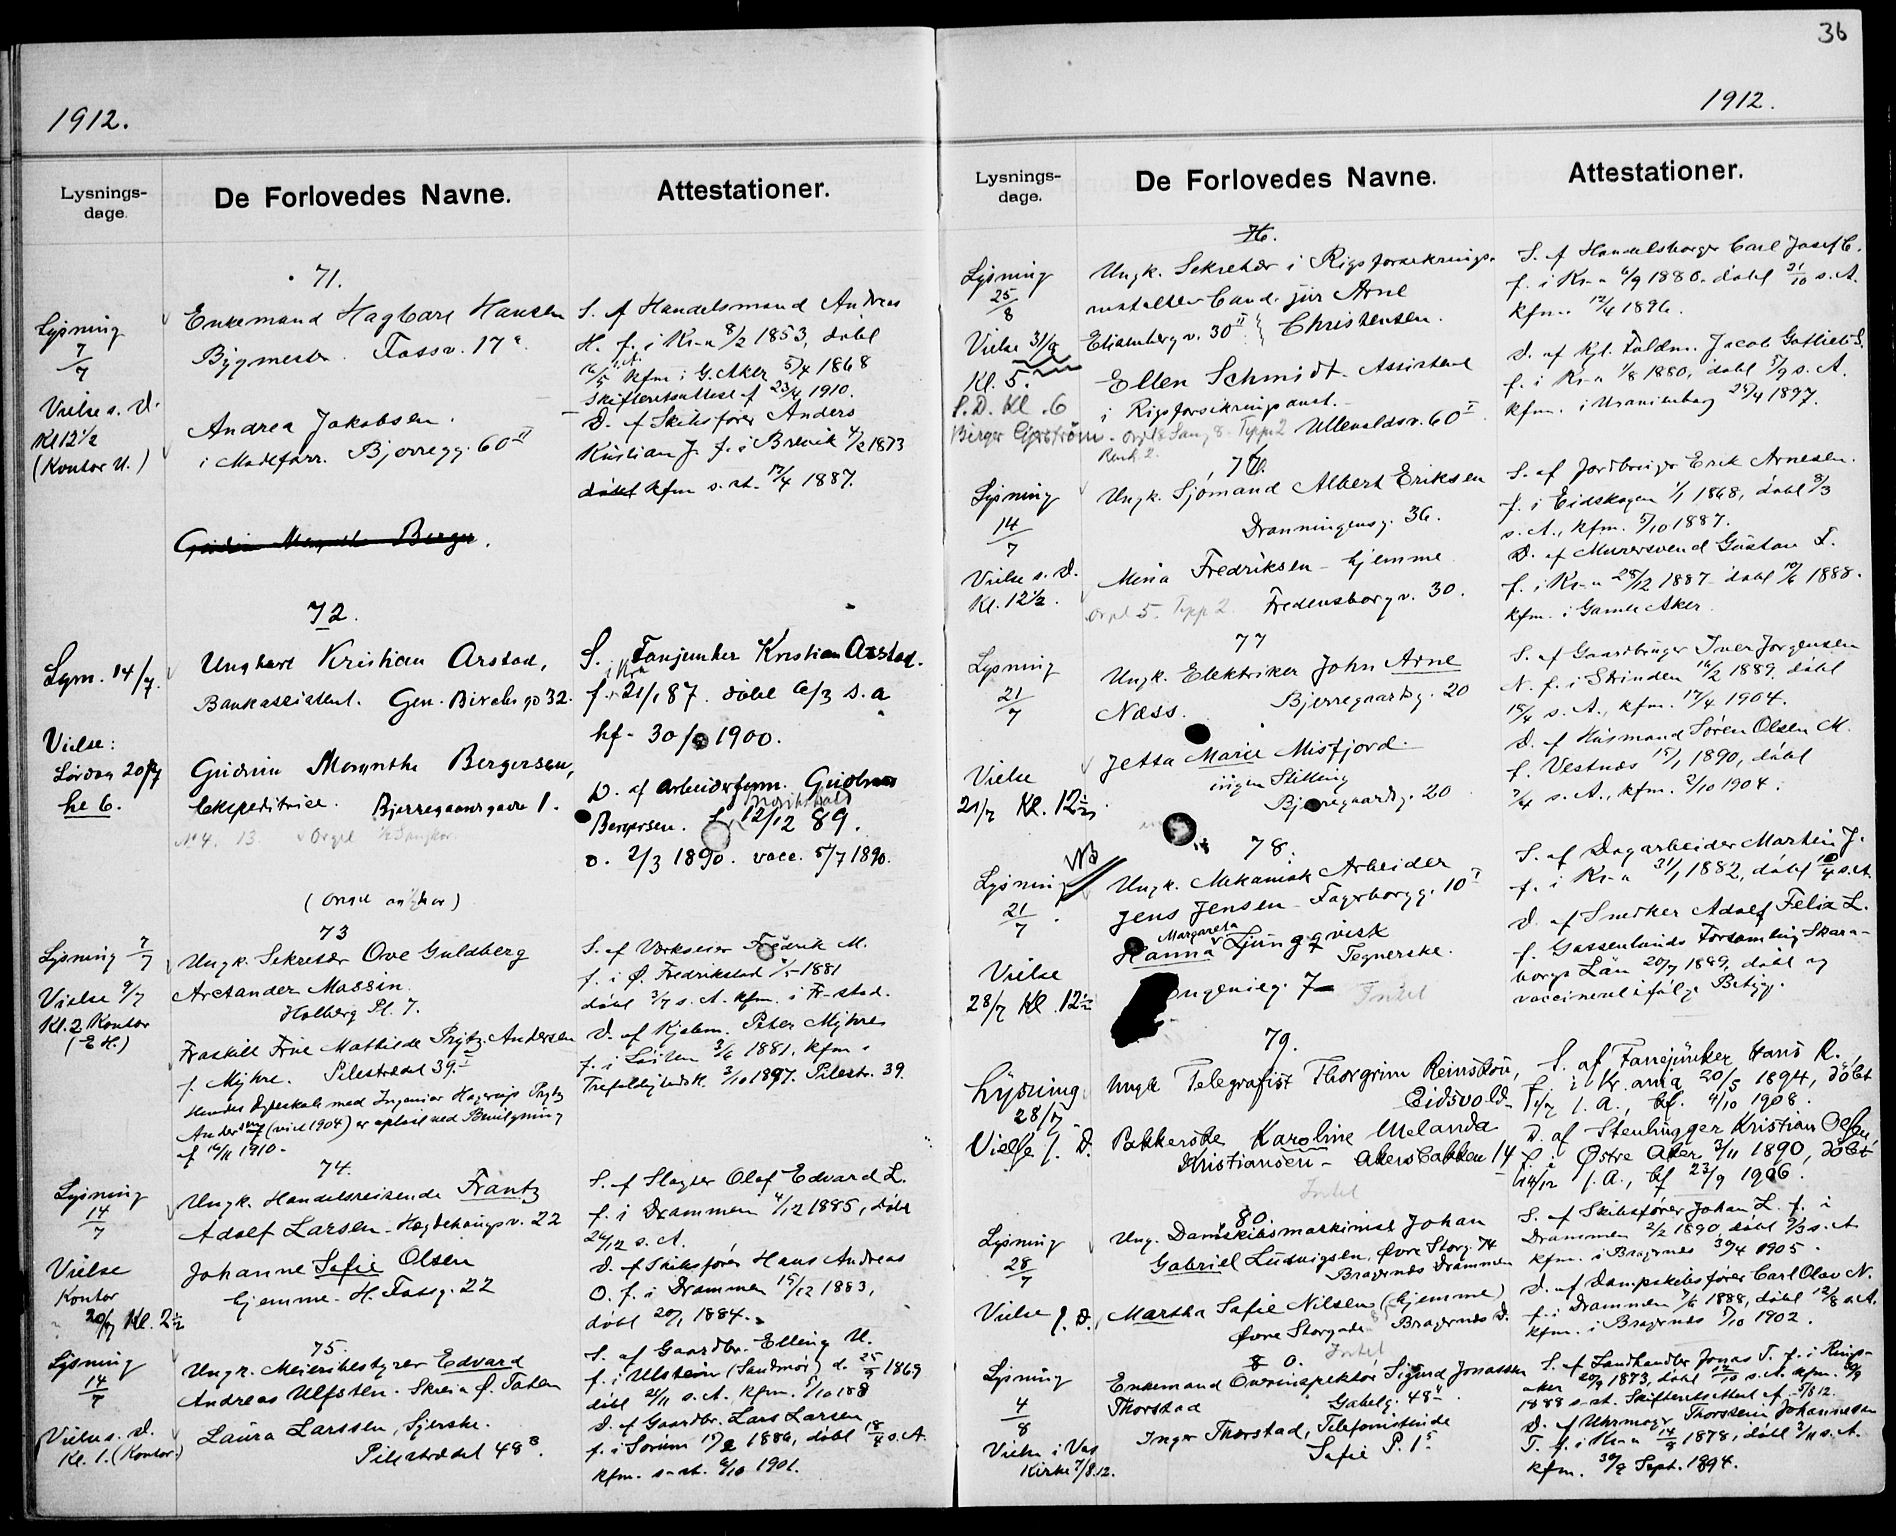 36
1912.
Lysnings-
dage.
De Forlovedes Navne.
Attestationer.
71.
Lysning
7/7
Vielse s. D.
Kl 12½
(Kontor U.)
Enkemand Hagbart Hansen
Bygmester. Fossv. 17
Andrea Jakobsen.
i Madsforr. Bjerregg. 60 II
S. af Handelsmand Andreas
H. f. i Kr-a 8/2 1853, døbt
16/5 s.A. kfm i G. Aker 5/4 1868
Skifteretsattest af 23/4 1910.
D. af Skibsfører Anders
Kristian J. f. i Brevik 4/2 1873
døbt kfm s. st. 17/4 1887.
72.
Lysn. 14/7.
Vielse:
Lørdag 20/7
kl 6.
Ungkarl Kristian Arstad,
Bankassistent. Gen. Birchs gd 32.
Gudrun Margrethe Bergersen,
Ekspeditrice. Bjerregaardsgade 1.
No 4. 13. Orgel
S. Fanejunker Kristian Arstad.
i Kra
f. 21/1 87. døbt 6/3 s. a
kf. 30/9 1900.
D. af Arbeidsform. Gudbrand
Bergersen. f. 12/12 89.
d. 2/3 1890. vacc. 5/7 1890.
73
Lysning 7/7
Vielse 9/7
Kl. 2 Kontor
(E H.)
Ungk. Sekretær Ove Guldberg
Arctander Massin.
Holberg Pl. 7.
Fraskilt Frue Mathilde Prytz-Andersen
f. Myhre. Pilestrædet 39 I
Hendes Egteskab med Ingeniør Hagerup Prytz
Andersen (viet 1904) er opløst ved Bevilgning
af 16/11 1910.
S. af Værkseier Fredrik M.
f. i Ø. Fredrikstad 1/5-1881
døbt 3/7 s. A. kfm. i Fr-stad.
D. af Kjøbm. Peter Myhre
f. i Løiten 3/6 1881. kfm i
Trefoldighedsk. 3/10 1897. Pilestr. 39.
74.
Lysning
14/7
Vielse
Kontor
20/7 Kl. 2½
Ungk. Handelsreisende Frantz
Adolf Larsen. Hegdehaugsv. 22
Johanne Sofie Olsen
hjemme. H. Fossg. 22
S. af Slagter Olaf Edvard L.
f. i Drammen 4/12 1885, døbt
26/12 s. A.
D. af Skibsfører Hans Andreas
O. f. i Drammen 15/12 1883,
døbt 20/1 1884.
75.
Lysning
14/7
Vielse s. D.
Kl. 1. (Kontor.)
Ungk. Meieribestyrer Edvard
Andreas Ulfsten. Skreia Ø. Toten
Laura Larssen, Syerske.
Pilestrædet 48 8.
S. af Gaardbr. Elling U.
f. i Ulstein (Søndmør) d. 25/9 1869
døbt 21/11 s. A. kfm. 5/10 188
D. af Gaardbr. Lars Larsen
f. i Sørum 17/2 1886, døbt 18/4 s. A.
kfm. s-st. 6/10 1901.
1912.
Lysnings-
dage.
De Forlovedes Navne.
Attestationer.
76.
Lysning
25/8
Vielse 31/8
Kl. 5.
P.D. Kl. 6
Ungk. Sekretær i Rigsforsikrings-
anstalten Cand. jur Arne
Eilertsbergv. 30 II Christensen.
Ellen Schmidt. Assistent
i Rigsforsikringsanst.
Ullevoldsv. 60 I
S. af Handelsborger Carl Josef C.
f. i Kr-a 6/9 1880. døbt 31/10 s. A.
kfm. 12/4 1896.
D. af Kgl. Fuldm. Jacob Gotlieb S.
f. i Kr-a 1/8 1880, døbt 5/9 s. A.
kfm. i Uranienborg 25/4 1897.
76.
Lysning
14/7
Vielse s. D.
Kl. 12½.
Ungk. Sjømand Albert Eriksen
Dronningensg. 36.
Mina Fredriksen - hjemme
Fredensborgv. 30.
S. af Jordbruger Erik Arnesen.
f. i Eidskogen 1/1 1868, døbt 8/3
s. A., kfm. 5/10 1887.
D. af Murersvend Gustav F.
f. i Kr-a 28/12 1887 døbt 10/6 1888.
kfm. i Gamle Aker.
77
Lysning
21/7
Vielse
21/7 Kl. 12½
Ungk. Elektriker John Arne
Næss. Bjerregaardsg. 20
Jetta Marie Misfjord.
ingen Stilling
Bjerregaardsg. 20
S. af Gaardbruger Iver Jørgensen
N. f. i Strinden 16/2 1889, døbt
15/4 s. A., kfm. 17/4 1904.
D. af Husmand Søren Olsen M.
f. Vestnes 15/1 1890, døbt
7/4 s. A., kfm. 2/10 1904.
78.
NB
Lysning
21/7
Vielse
28/7 Kl. 12½
Ungk. Mekanisk Arbeider
Jens Jensen - Fagerborgg. 10 I
Margareta
Hanna Ljungqvist
Tegnerske.
7
Intet
S. af Dagarbeider Martin J.
f. i Kr-a 31/1 1882, døbt 10/4 s. A.
D. af Snedker Adolf Felix L.
f. Gassenlunds Forsamling Skara-
borgs Län 20/7 1889, døbt og
vaccineret ifølge Betyg.
79.
Lysning
28/7
Vielse s. D.
Ungk Telegrafist Thorgrim Reinskou,
Eidsvold.
Pakkerske Karoline Melanda
Kristiansen - Akersbakken 14
Intet
S. af Fanejunker Hans R.
f. i Kr.ania 20/5 1894, døbt
1/7 s. A., kf. 4/10 1908.
D. af Stenhugger Kristian Olsen,
f. i Østre Aker 3/11 1890, døbt
14/12 s. A., kf 23/9 1906.
80
Lysning
28/7
Vielse s. D.
Ung. Damskibsmaskinist Johan
Gabriel Ludvigsen, Øvre Storg. 74
Bragernes Drammen
Martha Sofie Nilsen (hjemme)
Øvre Storgade Bragernes D.
Intet
S. af Skibsfører Johan L. f. i
Drammen 2/2 1890 døbt 9/3 s. A
kfm. i Bragernes 30/4 1905.
D. af Dampskibsfører Carl Olav N.
f. i Drammen 7/6 1888, døbt 12/8 s. A.
kfm. i Bragernes 5/10 1902.
80.
Lysning
4/8
Vielse i Vas
Kirke 7/8 12.
Enkemand Overinspektør Sigurd Jonassen
Thorstad Gabelsg. 48
Inger Thorstad, Telefonistinde
Sofie P. 1
S. af Landhandler Jonas T. f. i Rings-
aker 20/9 1873, døbt 12/10 s. A. kfm. 30/9
1888 s-st. Skifteretsattest af 5/8 12.
D. af Uhrmager Thorstein Johannesen
T. f. i Kr-a 14/9 1878, døbt 3/11 s. A.
kfm. 30/9 Sept. 1894.